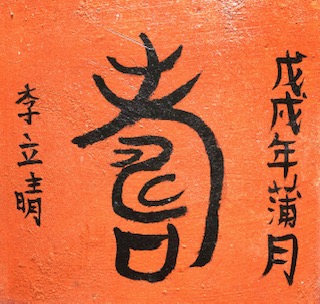 戊戌年蒲月
壽
李立晴